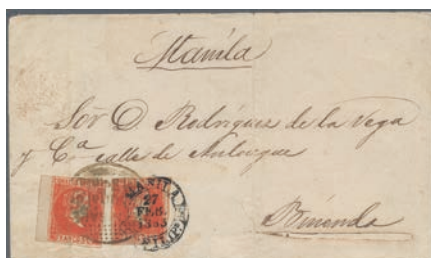 Manila
Sor. D. Rodriguez de la Vega
y Ca. calle de
Binondo
MANILA
27
FEB.